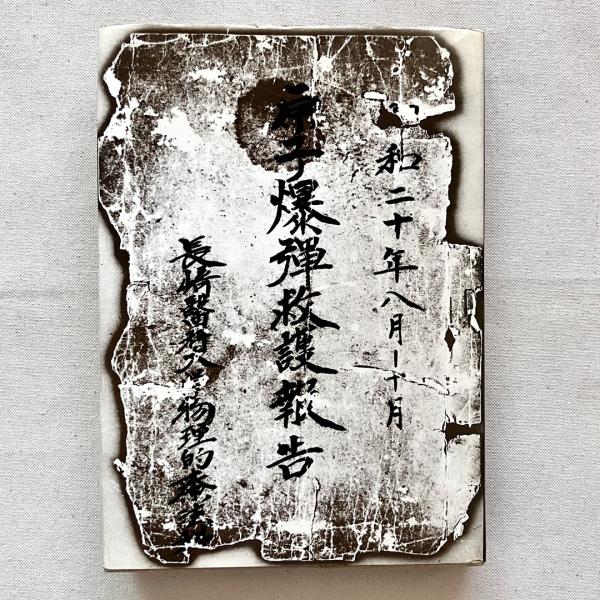 昭和二十年八月―十月
原子爆弾救護報告
長崎醫科大学物理的療法科